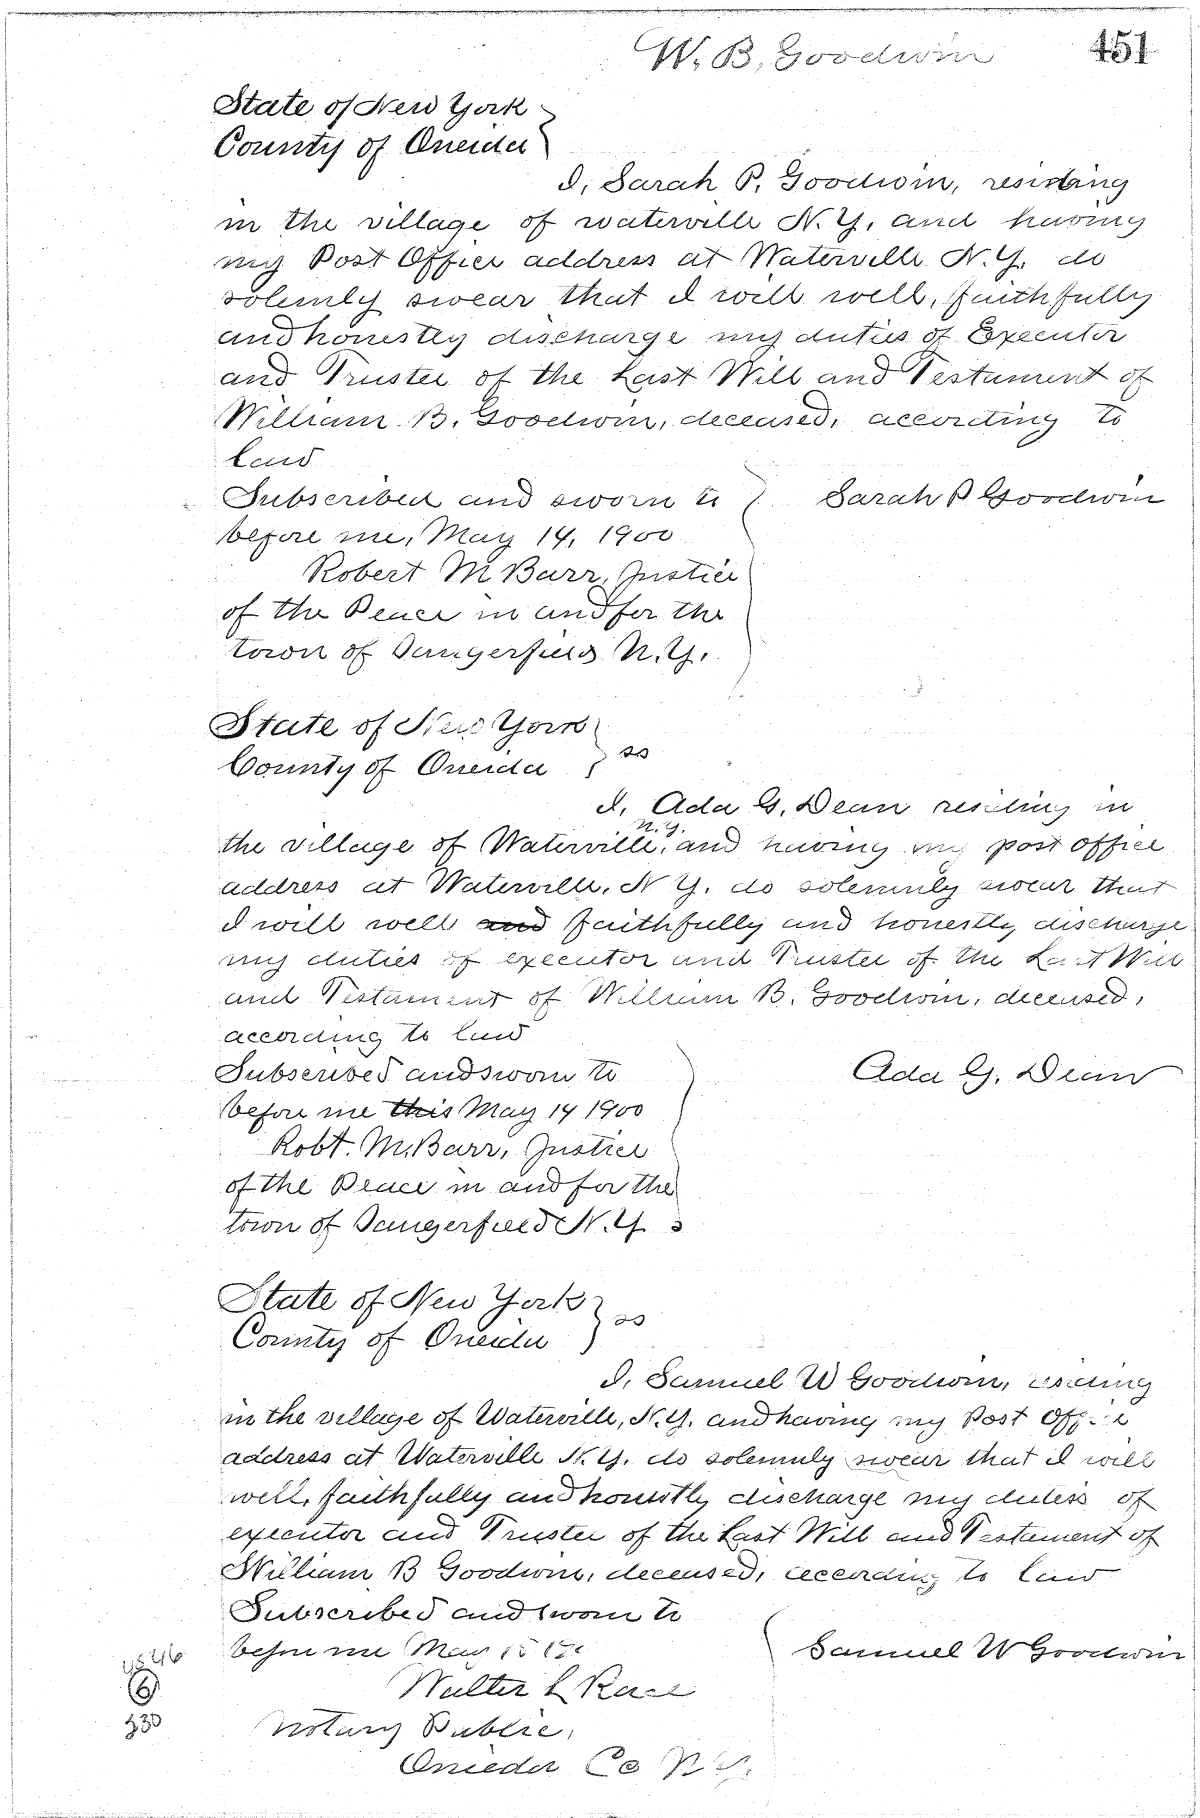 W. B. Goodwin 451
State of New York
County of Oneida
I, Sarah P. Goodwin, residing
in the village of waterville N.Y. and having
my Post Office address at Waterville N.Y. do
solemnly swear that I will well, faithfully
and honestly discharge my duties of Executor
and Trustee of the Last Will and Testament of
William B. Goodwin, deceased, according to
law
Subscribed and sworn to Sarah P Goodwin
before me, May 14, 1900
Robert M Barr, Justice
of the Peace in and for the
town of Sangerfield N.Y.
State of New York
County of Oneida ss
I, Ada G. Dean residing in
the village of Waterville, N.Y. and having my post office
address at Waterville, N Y. do solemnly swear that
I will well and faithfully and honestly discharge
my duties of executor and Trustee of the Last Will
and Testament of William B. Goodwin, deceased,
according to law
Subscribed and sworn to Ada G. Dean
before me this May 14 1900
Robt. M. Barr, Justice
of the Peace in and for the
town of Sangerfield N.Y.
State of New York
County of Oneida ss
I, Samuel W Goodwin, residing
in the village of Waterville, N.Y. and having my Post Office
address at Waterville N.Y. do solemnly swear that I will
well, faithfully and honestly discharge my duties of
executor and Trustee of the Last Will and Testament of
William B Goodwin, deceased, according to law
Subscribed and sworn to
before me May 15 Samuel W Goodwin
Walter L Race
Notary Public,
Oneida Co N.Y.
6
330